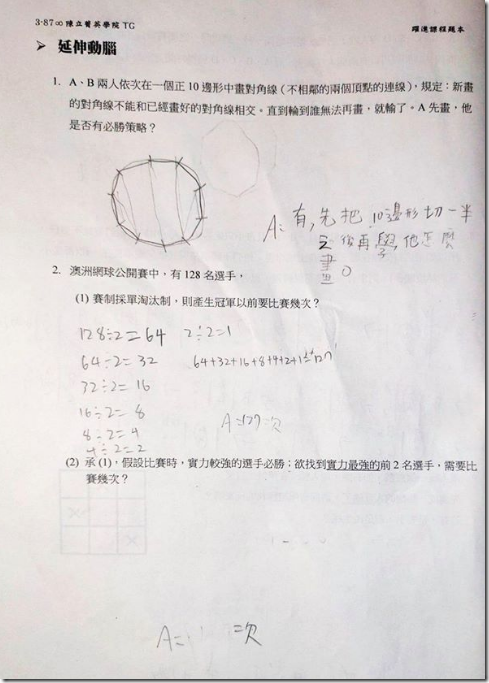 3-87∞ 陳立菁英學院 TG
躍進課程題本
➤ 延伸動腦
1. A、B 兩人依次在一個正 10 邊形中畫對角線（不相鄰的兩個頂點的連線），規定：新畫
的對角線不能和已經畫好的對角線相交。直到輪到誰無法再畫，就輸了。A 先畫，他
是否有必勝策略？
A: 有,先把10邊形切一半
後再學他怎麼
畫。
2. 澳洲網球公開賽中，有 128 名選手，
(1) 賽制採單淘汰制，則產生冠軍以前要比賽幾次？
128÷2=64 2÷2=1
64÷2=32 64+32+16+8+4+2+1=127
32÷2=16
16÷2=8
8÷2=4
4÷2=2
A=127次
(2) 承 (1)，假設比賽時，實力較強的選手必勝；欲找到實力最強的前 2 名選手，需要比
賽幾次？
A= 次